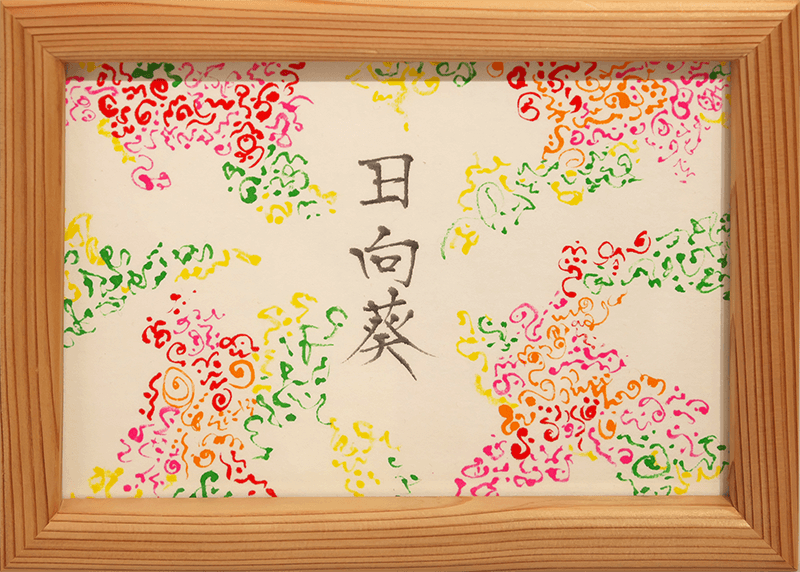 日向葵